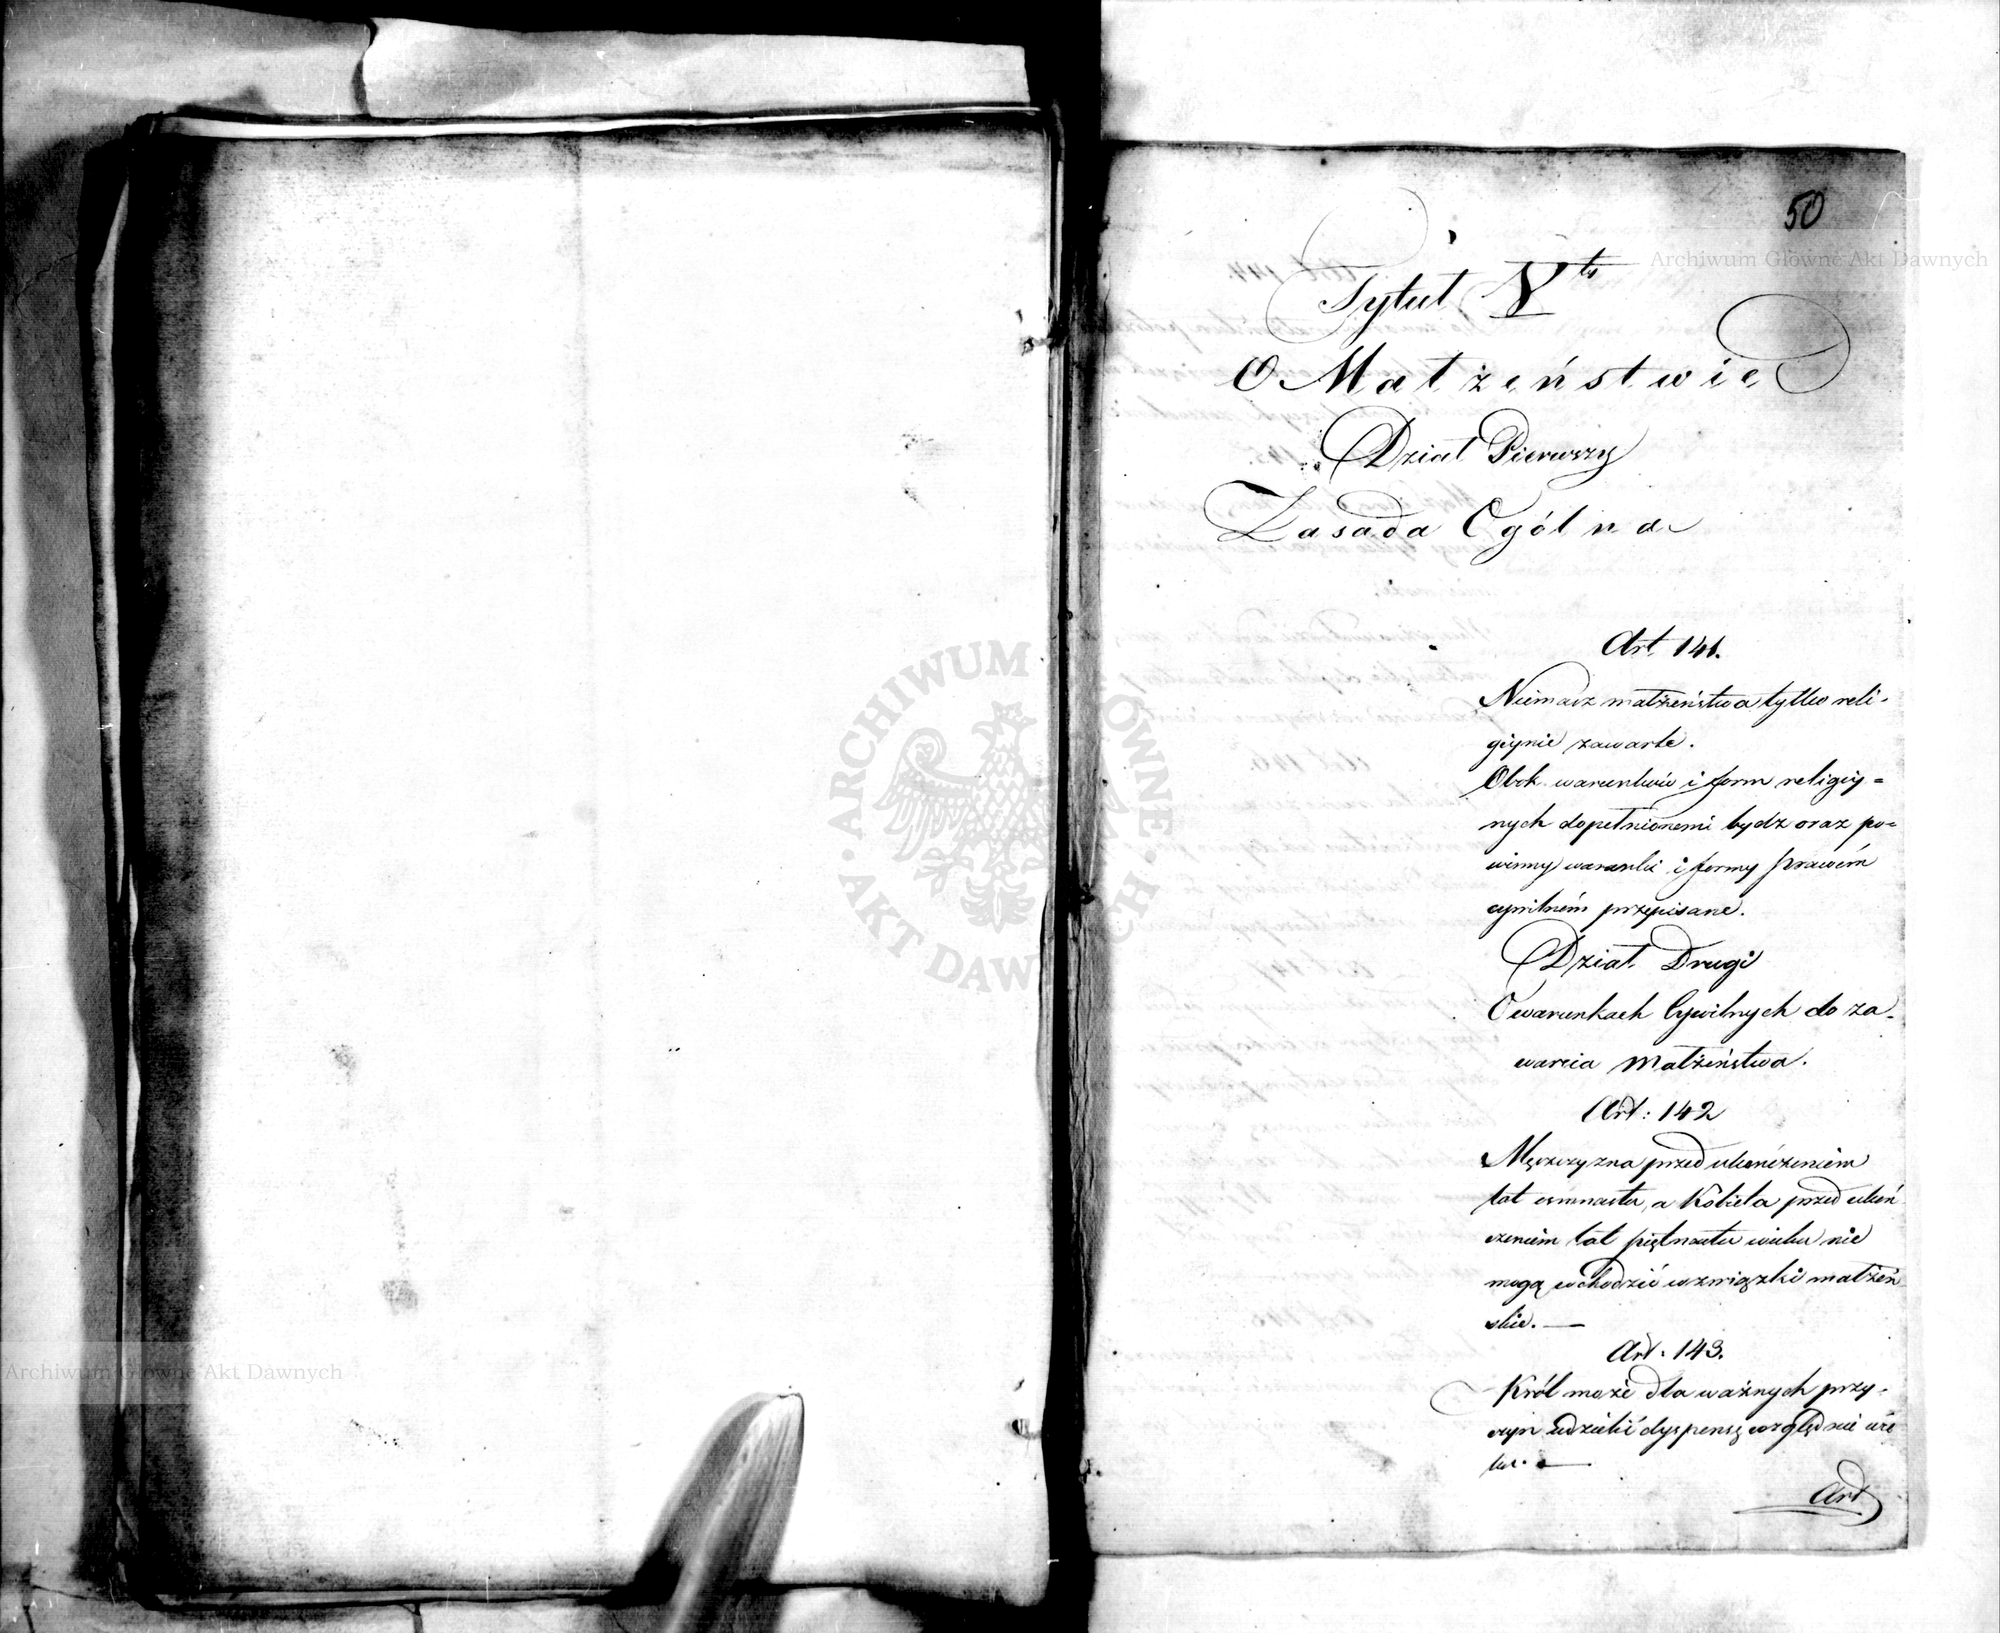 50
Tytuł Vty
O Małżeństwie
Dział Pierwszy
Zasada Ogólna
Art. 141.
Niemasz małżeństwa tylko reli-
giynie zawarte.
Obok warunków i form religiy=
nych dopełnionemi bydz oraz po=
winny warunki i formy prawem
cywilném przepisane.
Dział Drugi
O warunkach Cywilnych do za-
warcia Małżeństwa.
Art: 142
Męzczyzna przed ukończeniem
lat osmnastu, a Kobieta przed ukoń
czeniem lat piętnastu wieku nie
mogą wchodzić w związki małżeń
skie. —
Art. 143.
Król może dla ważnych przy-
czyn udzielić dyspensę względnie wie
ku. —
Art
Archiwum Główne Akt Dawnych
Archiwum Główne Akt Dawnych
ARCHIWUM GŁÓWNE AKT DAWNYCH